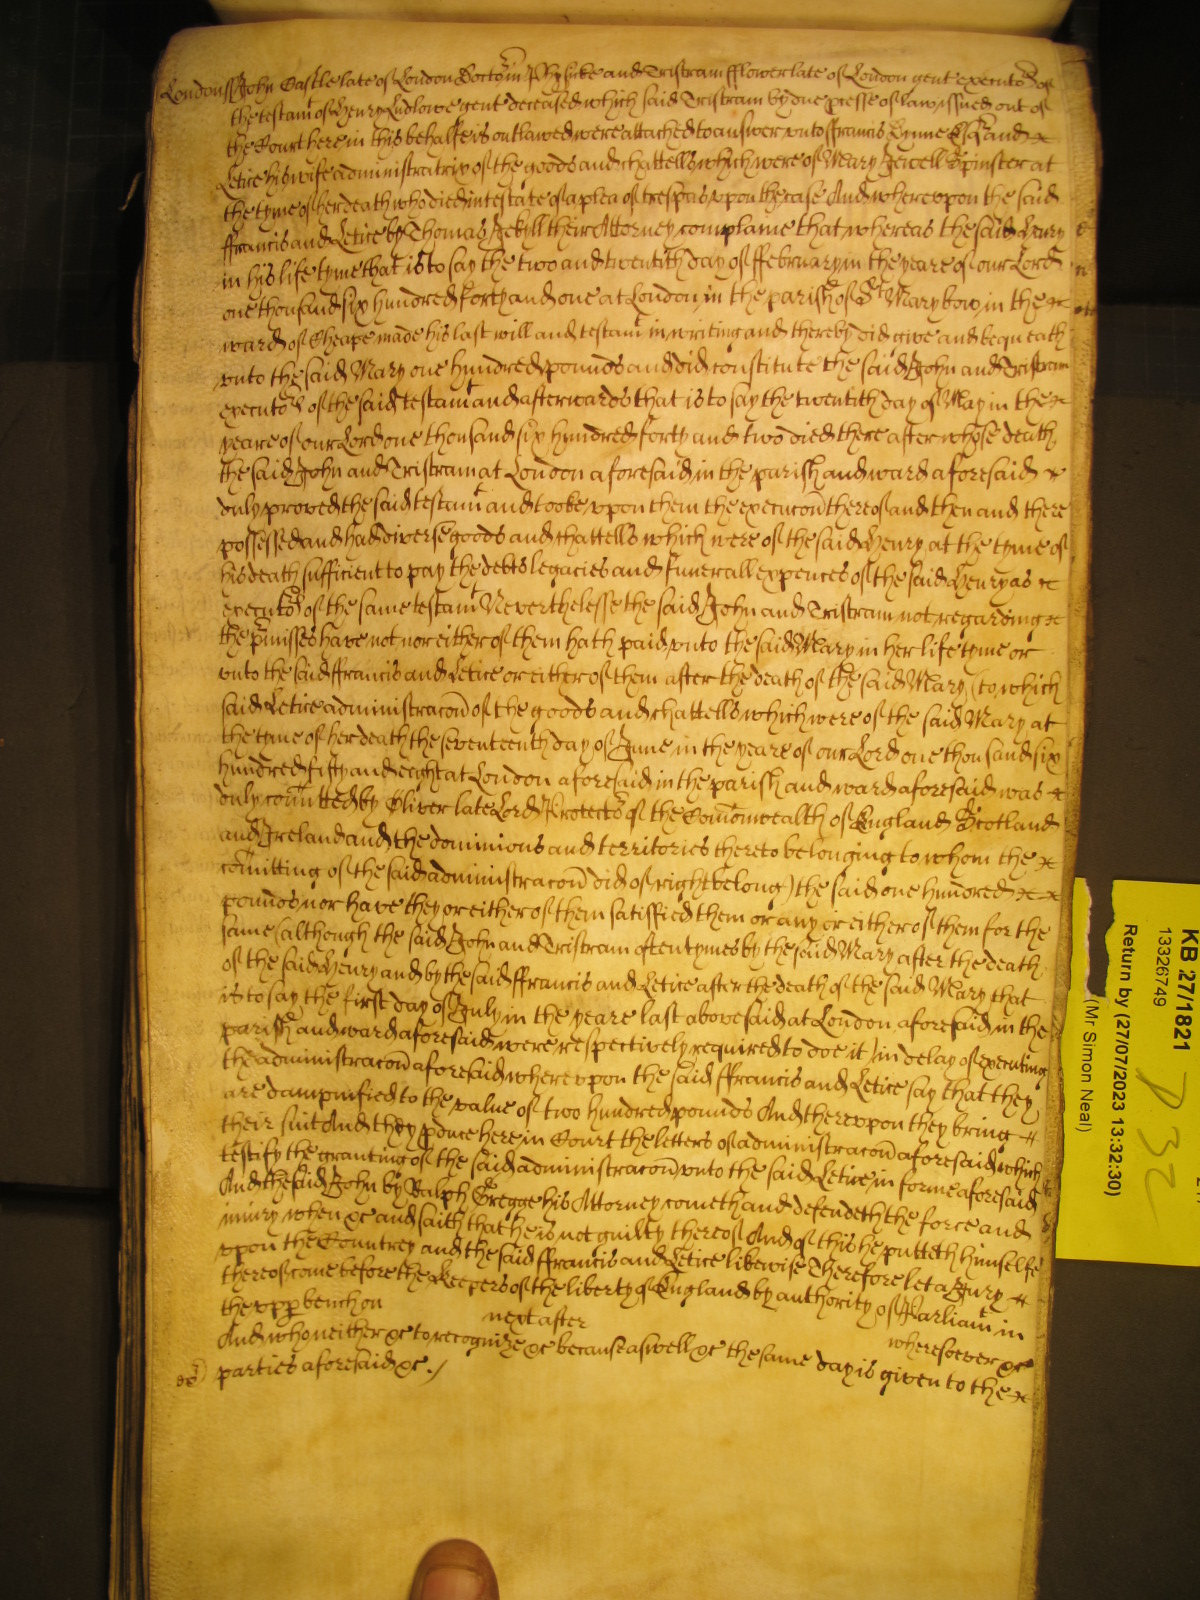 London ss John Castle late of London Doctor in Phisicke and Tristram fflower late of London gent executors of
the testamt of Henry Ludlowe gent deceased which said Tristram by due presse of law issued out of
the Court here in this behalfe is outlawed were attached to answer unto ffrancis Esqr and
Letice his wife administratrix of the goods and chattells which were of Mary Jewell Spinster at
the tyme of her death who died intestate of a plea of trespas upon the case And whereupon the said
ffrancis and Letice by Thomas Jekyll their Attorney complaine that whereas the said Henry
in his life tyme that is to say the two and twentith day of ffebruary in the yeare of our Lord
one thousand six hundred forty and one at London in the parish of St Mary bow in the
ward of Cheape made his last will and testamt in writing and thereby did give and bequeath
unto the said Mary one hundred pounds and did constitute the said John and Tristram
executors of the said testamt and afterwards that is to say the twentith day of May in the
yeare of our Lord one thousand six hundred forty and two died there after whose death
the said John and Tristram at London aforesaid in the parish and ward aforesaid
duly proved the said testamt and tooke upon them the execucon thereof and then and there
possessed and had diverse goods and chattells which were of the said Henry at the tyme of
his death sufficient to pay the debts legacies and funerall expences of the said Henry as
executors of the same testamt Neverthelesse the said John and Tristram not regarding
the pmisses have not nor either of them hath paid unto the said Mary in her life tyme or
unto the said ffrancis and Letice or either of them after the death of the said Mary (to which
said Letice administracon of the goods and chattells which were of the said Mary at
the tyme of her death the seventeenth day of June in the yeare of our Lord one thousand six
hundred fifty and eeight at London aforesaid in the parish and ward aforesaid was
duly comitted by Oliver late Lord Protector of the Comonwealth of England Scotland
and Ireland and the dominions and territories thereto belonging to whom the
comitting of the said administracon did of right belong) the said one hundred
pounds nor have they or either of them satisfied them or any or either of them for the
same (although the said John and Tristram oftentymes by the said Mary after the death
of the said Henry and by the said ffrancis and Letice after the death of the said Mary that
is to say the first day of July in the yeare last abovesaid at London aforesaid in the
parish and ward aforesaid were respectively required to doe it) in delay of executing
the administracon aforesaid whereupon the said ffrancis and Letice say that they
are dampnified to the value of two hundred pounds And thereupon they bring
their suit And they pduce here in Court the letters of administracon aforesaid which
testify the granting of the said administracon unto the said Letice in forme aforesaid
And the said John by Ralph Gregge his Attorney cometh and defendeth the force and
iniury when &c and saith that he is not guilty thereof And of this he putteth himselfe
upon the Countrey and the said ffrancis and Letice likewise Therefore let a Jury
thereof come before the Keepers of the liberty of England by authority of Parliamt in
the upp bench on next after wheresoever &c
And who neither &c to recognize &c because aswell &c the same day is given to the
parties aforesaid &c./
KB 27/1821
13326749
Return by (27/07/2023 13:32:30)
(Mr Simon Neal)